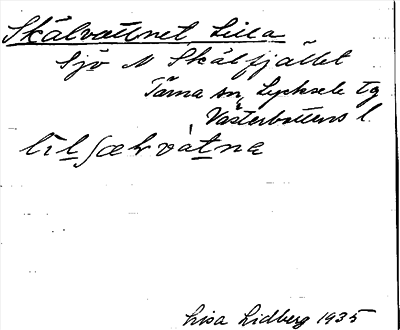 Skålvattnet Lilla
Sjö N Skålfjället
Tärna sn, Lycksele lg
Västerbottens l.
Lisa Lidberg 1935